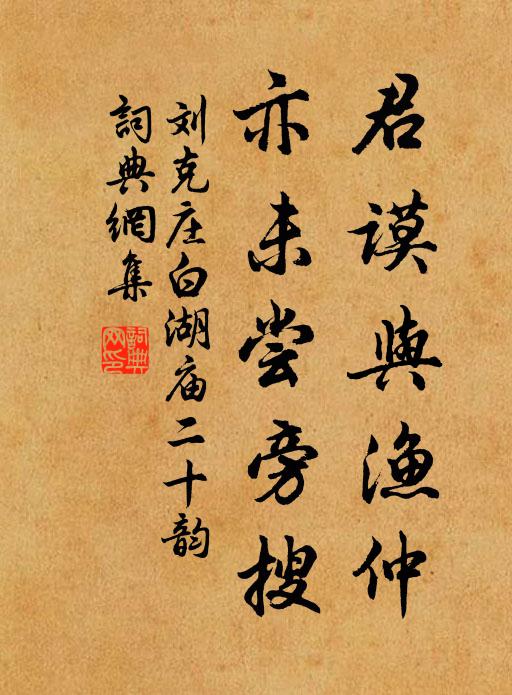 君谟與渔仲
亦未尝旁搜
刘克庄白湖庙二十韵
詞典網集
詞典网印